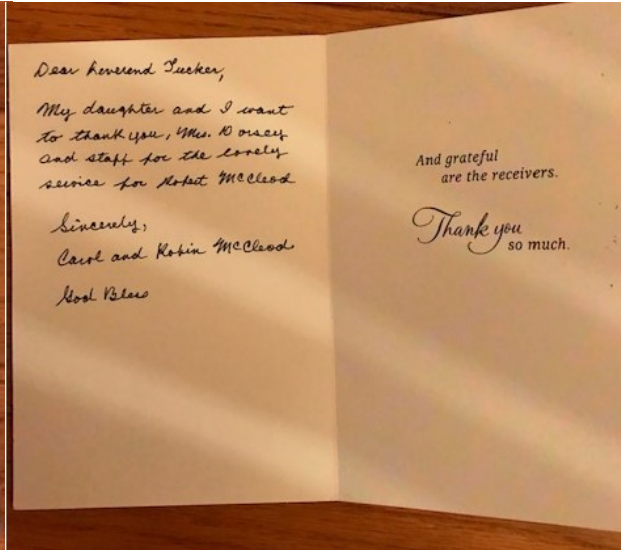 Dear Reverend Tucker,
My daughter and I want
to thank you, Mrs. Dorsey
and staff for the lovely
service for Robert McCleod
Sincerely,
Carol and Robin McCleod
God Bless
And grateful
are the receivers.
Thank you
so much.